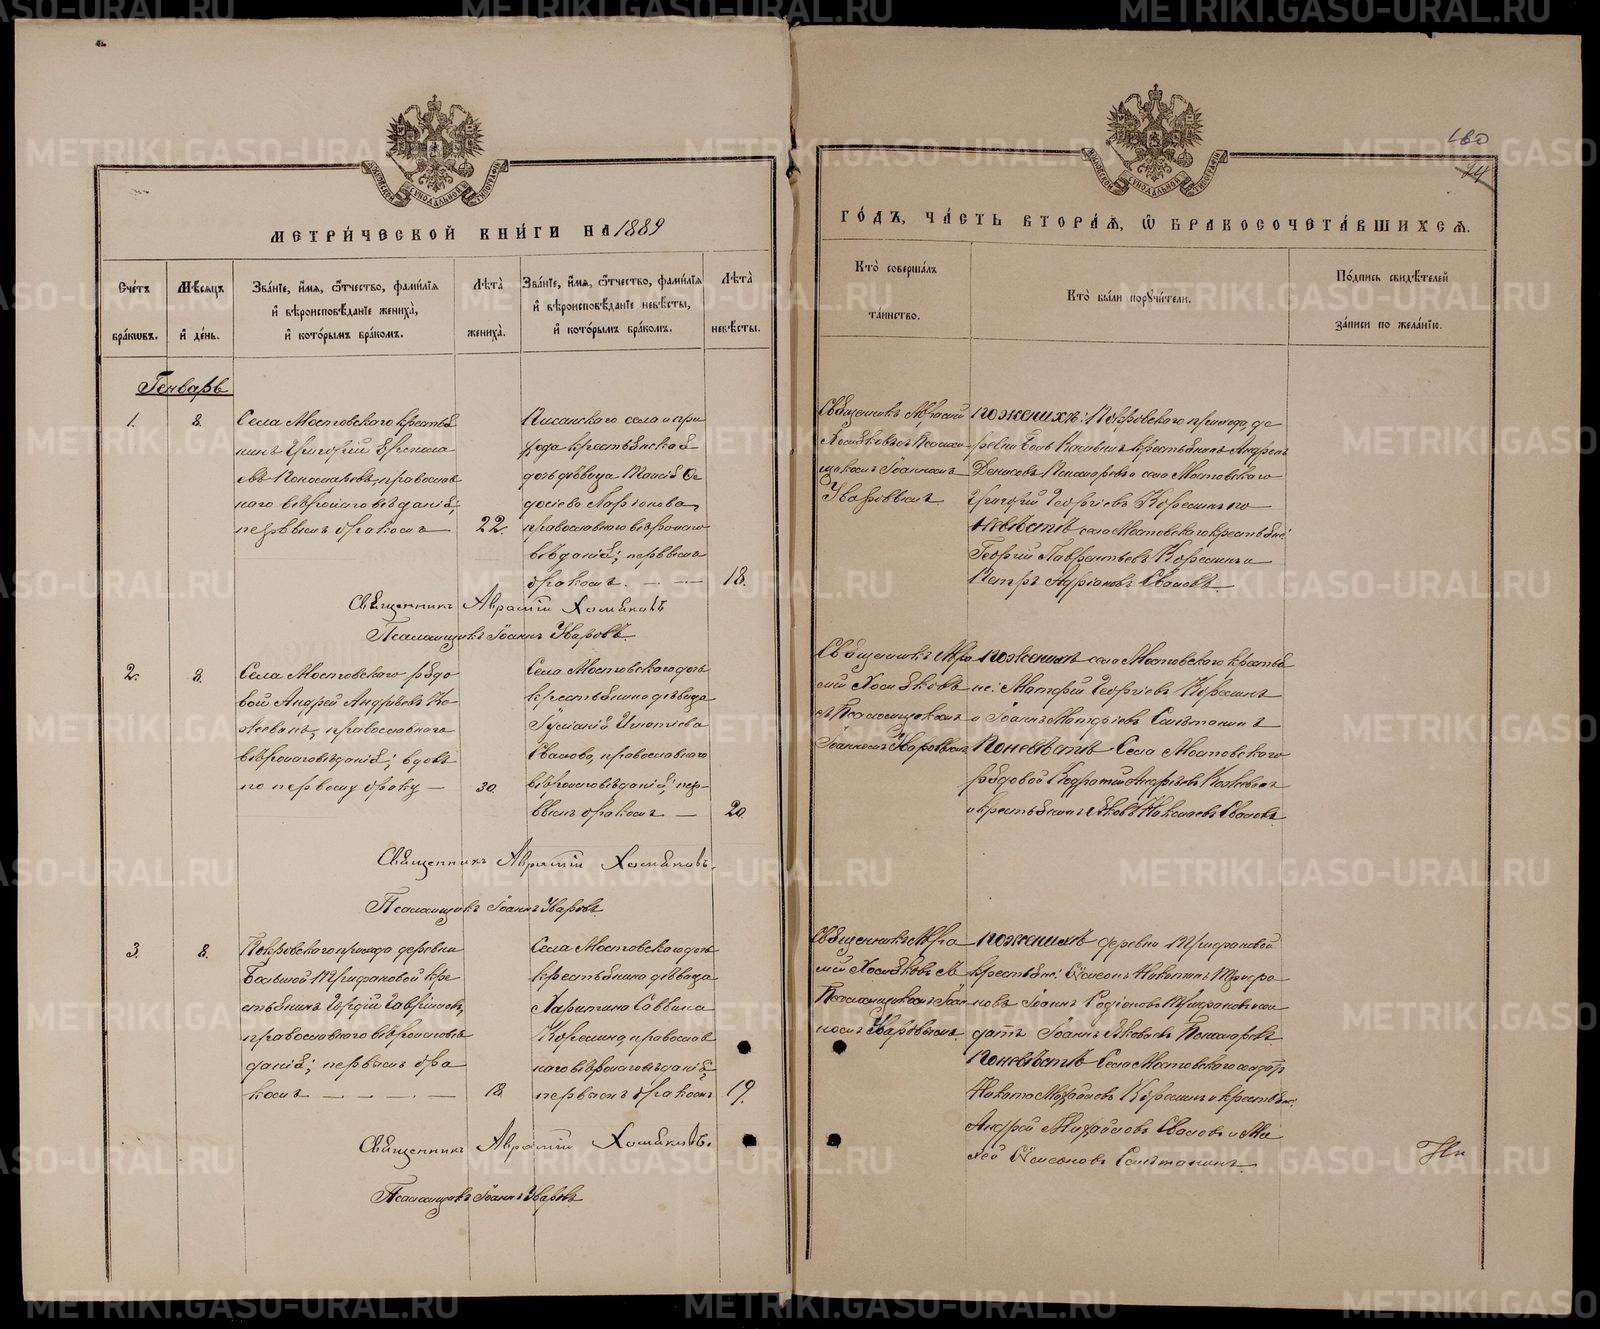 METRIKI.GASO-URAL.RU
160
24
МЕТРИ́ЧЕСКОЙ КНИ́ГИ НА 1889
ГО́ДЪ, ЧА́СТЬ ВТОРА́Я, Ѡ҆ БРАКОСОЧЕТА́ВШИХСѦ.
Сче́тъ бра́кѡвъ.
Мѣ́сяцъ и҆ де́нь.
Зва́нїе, и҆́мѧ, ѻ҆́тчество, фами́лїѧ
и҆ вѣроисповѣ́данїе жениха̀,
и҆ кото́рымъ бра́комъ.
Лѣта̀ жениха̀.
Зва́нїе, и҆́мѧ, ѻ҆́тчество, фами́лїѧ
и҆ вѣроисповѣ́данїе невѣ́сты,
и҆ кото́рымъ бра́комъ.
Лѣта̀ невѣ́сты.
Кто̀ соверша́лъ
та́инство.
Кто̀ бы́ли порꙋчи́тели.
По́дпись свидѣ́телей
за́писи по жела́нїю.
Генварь
1.
8.
Села Мостовского крестья
нинъ Григорій Ермола
евъ Пономаревъ, православ
наго вѣроисповѣданія;
первымъ бракомъ
22.
Писанского села и при
хода крестьянская
дочь дѣвица Таисія Ѳе
досіева Ларіонова,
православнаго вѣроиспо
вѣданія; первымъ
бракомъ.
18.
Священникъ Аврамій
Хомяковъ съ Псалом
щикомъ Іоанномъ
Уваровымъ
по женихѣ: Покровского прихода, де
ревни крестьянинъ Андрей
Денисовъ Пономаревъ и села Мостовского
Григорій Георгіевъ Корелинъ по
невѣстѣ села Мостовского крестьяне:
Георгій Лаврентьевъ Корелинъ и
Петръ Адріановъ
Священникъ Аврамій Хомяковъ
Псаломщикъ Іоаннъ Уваровъ.
2.
8.
Села Мостовского рядо
вой Андрей Андреевъ Ко
жевинъ, православнаго
вѣроисповѣданія; вдовъ
по первому браку
30.
Села Мостовского дочь
крестьянина дѣвица
Іуліанія Игнатіева
православнаго
вѣроисповѣданія; пер-
вымъ бракомъ
20.
Священникъ Авра
мій Хомяковъ
съ Псаломщикомъ
Іоанномъ Уваровымъ
по женихѣ села Мостовского крестья
не: Георгіевъ Корелинъ
и Іоаннъ Сметанинъ
По невѣстѣ Села Мостовского
рядовой Андреевъ Кожевинъ
и крестьянинъ Яковъ Николаевъ
Священникъ Аврамій Хомяковъ.
Псаломщикъ Іоаннъ Уваровъ
3.
8.
Покровского прихода деревни
Большой Трифановой кре
стьянинъ Гавриловъ,
православнаго вѣроисповѣ
данія; первымъ бра
комъ
18.
Села Мостовского дочь
крестьянина дѣвица
Харитина Саввина
Корелина, православ
наго вѣроисповѣданія,
первымъ бракомъ
19.
Священникъ Авра
мій Хомяковъ съ
Псаломщикомъ Іоан
номъ Уваровымъ.
по женихѣ деревни Трифановой
крестьяне: Симеонъ Никитинъ Трифа
новъ Іоаннъ Родіоновъ Трифановъ и сол
датъ Іоаннъ Яковлевъ Пономаревъ
По невѣстѣ Села Мостовского солдатъ
Никита Михайловъ Корелинъ и крестьяне:
Андрей Михайловъ и Ми
хей Симеоновъ Сметанинъ.
Священникъ Аврамій Хомяковъ.
Псаломщикъ Іоаннъ Уваровъ